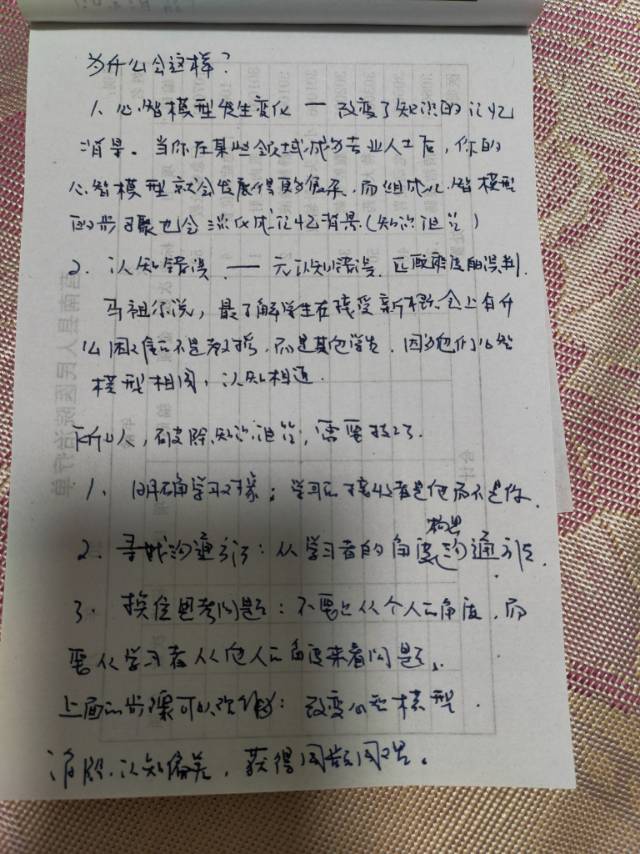 为什么会这样？
1、心智模型发生变化 — 改变了知识的记忆
背景。当你在某些领域成为专业人士后，你的
心智模型就会发展得更为复杂，而组成心智模型
的步骤也会淡化成记忆背景（知识诅咒）
2、认知错误 — 元认知错误、匹配难度的误判。
马祖尔说，最了解学生在接受新概念上有什
么困难的不是教授，而是其他学生，因为他们心智
模型相同，认知相近。
所以，破除知识诅咒，需要技巧。
1、明确学习对象；学习的接收者是他而不是你。
2、寻找沟通方法：从学习者的角度构思沟通方法。
3、换位思考问题：不要只从个人的角度，而
要从学习者从他人的角度来看问题。
上面的步骤可以改变心智模型，
消除认知偏差，获得